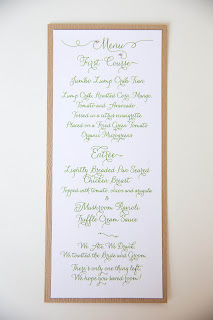 Menu
First Course
Jumbo Lump Crab Tian
Lump Crab, Roasted Corn, Mango,
Tomato and Avocado
Tossed in a citrus vinaigrette
Placed on a Fried Green Tomato
Organic Microgreens
Entree
Lightly Breaded Pan Seared
Chicken Breast
Topped with tomato, onion and arugula
&
Mushroom Ravioli
Truffle Cream Sauce
We Ate, We Drank,
We toasted the Bride and Groom
There's only one thing left,
We hope you saved room!